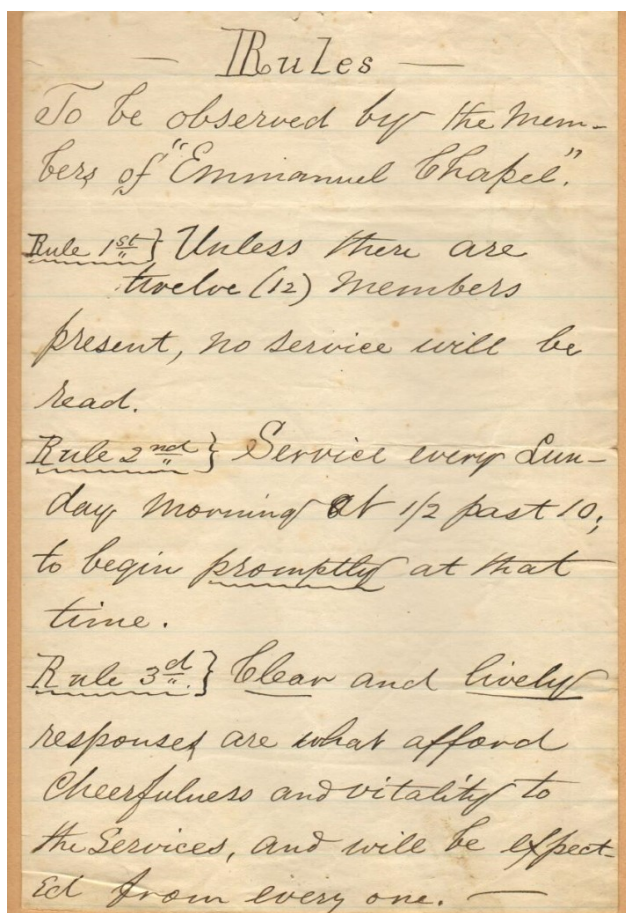 — Rules —
To be observed by the Mem-
bers of "Emmanuel Chapel".
Rule 1st } Unless there are
twelve (12) Members
present, no service will be
read.
Rule 2nd } Service every Sun-
day Morning at 1/2 past 10;
to begin promptly at that
time.
Rule 3d. } Clear and lively
responses are what afford
Cheerfulness and vitality to
the Services, and will be expect-
ed from every one. —